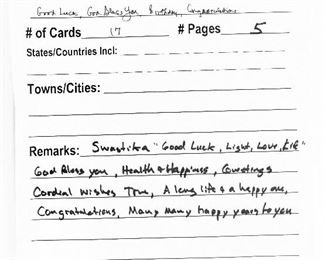 Good Luck, God Bless You, Birthday, Congratulations
# of Cards 17 # Pages 5
States/Countries Incl:
Towns/Cities:
Remarks: Swastika "Good Luck, Light, Love, Life"
God Bless you, Health & Happiness, Greetings
Cordial Wishes True, A long life & a happy one,
Congratulations, Many Many happy years to you